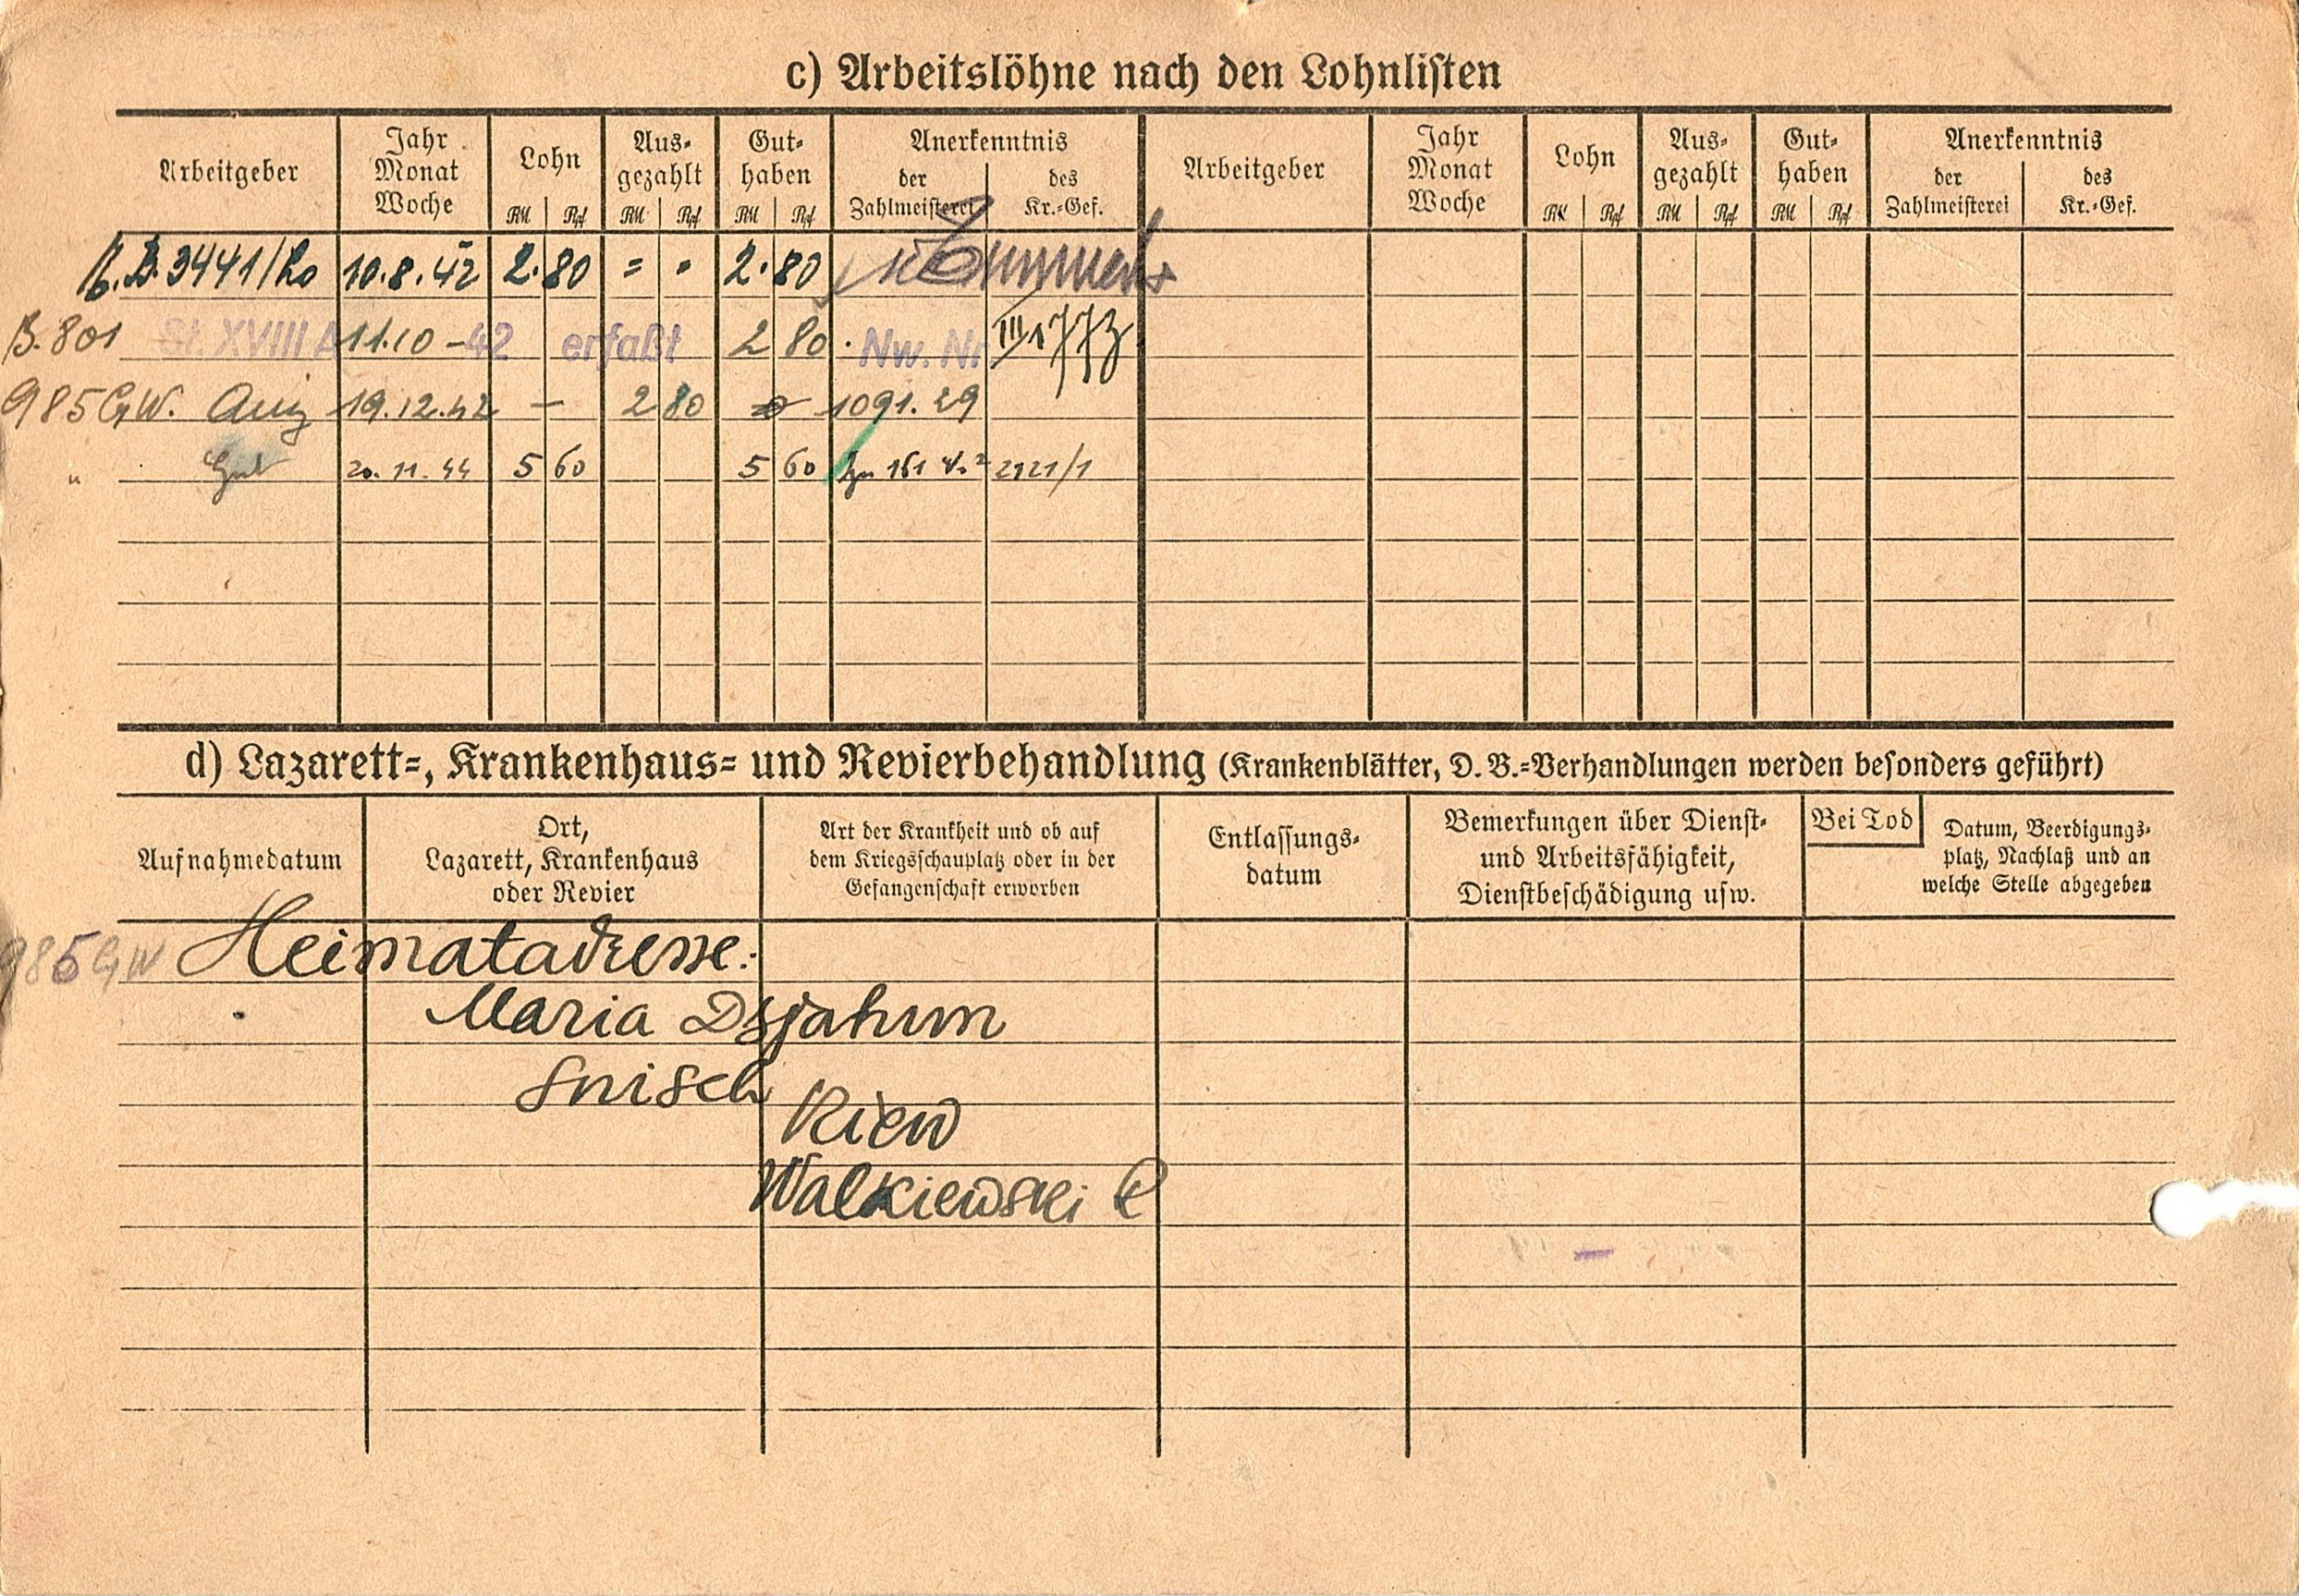 c) Arbeitslöhne nach den Lohnlisten
Arbeitgeber Jahr Monat Woche Lohn RM Rpf Aus-gezahlt RM Rpf Gut-haben RM Rpf Anerkenntnis der Zahlmeisterei des Kr.-Gef. Arbeitgeber Jahr Monat Woche Lohn RM Rpf Aus-gezahlt RM Rpf Gut-haben RM Rpf Anerkenntnis der Zahlmeisterei des Kr.-Gef.
3441/Lo 10.8.42 2.80 = . 2.80
B. 801 St. XVIII A 11.10-42 erfaßt 2 80. Nw. Nr III
985 GW. 19.12.42 – 2 80 1091.29
" Gut 20.11.44 5 60 5 60 161 2121/1
d) Lazarett-, Krankenhaus- und Revierbehandlung (Krankenblätter, D. B.-Verhandlungen werden besonders geführt)
Aufnahmedatum
Ort,
Lazarett, Krankenhaus
oder Revier
Art der Krankheit und ob auf
dem Kriegsschauplatz oder in der
Gefangenschaft erworben
Entlassungs-
datum
Bemerkungen über Dienst-
und Arbeitsfähigkeit,
Dienstbeschädigung usw.
Bei Tod
Datum, Beerdigungs-
platz, Nachlaß und an
welche Stelle abgegeben
985 GW Heimatadresse:
Maria
Kiew
Walkiewski